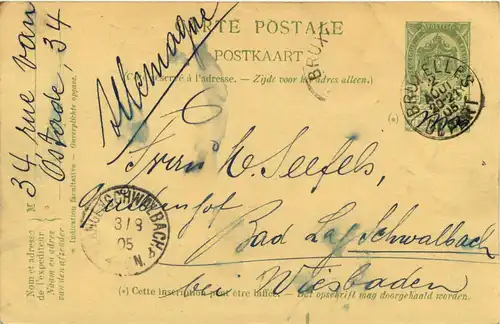 CARTE POSTALE
POSTKAART
réservé à l'adresse. - Zijde voor het adres alleen.)
Allemagne
34 rue van
Ostade, 34
M
Nom et adresse
de l'expéditeur
Naam en adres
van den afzender
* Indication facultative - Onverplichte opgave.
BRUX
BRUXELLES
AOUT
05
DÉPART
(*)
Frau E. Seefels,
Bad Lg. Schwalbach
bei Wiesbaden
LANGENSCHWALBACH
3/8
05
N.
(*) Cette inscription peut être biffée. - Het opschrift mag doorgehaald worden.